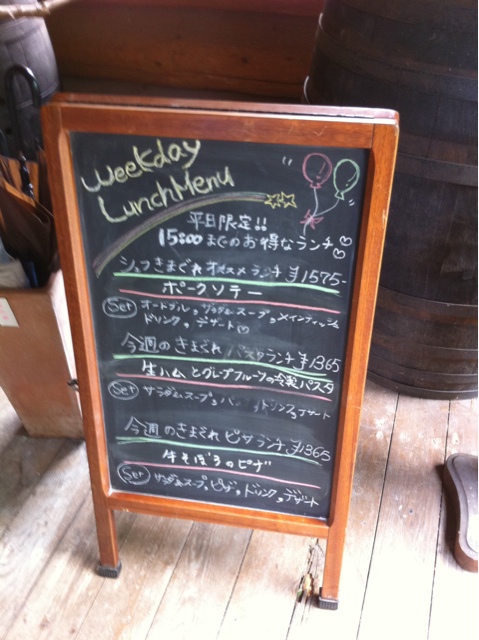 Weekday
Lunch Menu
平日限定!!
15:00までのお得なランチ♡
シェフきまぐれオススメランチ ¥1575-
ポークソテー
Set オードブル、サラダ、スープ、メインディッシュ
ドリンク、デザート♡
今週のきまぐれ パスタランチ ¥1365
生ハムとグレープフルーツの冷製パスタ
Set サラダ、スープ、パン、ドリンク、デザート
今週のきまぐれ ピザランチ ¥1365
牛そぼろのピザ
Set サラダ、スープ、ピザ、ドリンク、デザート